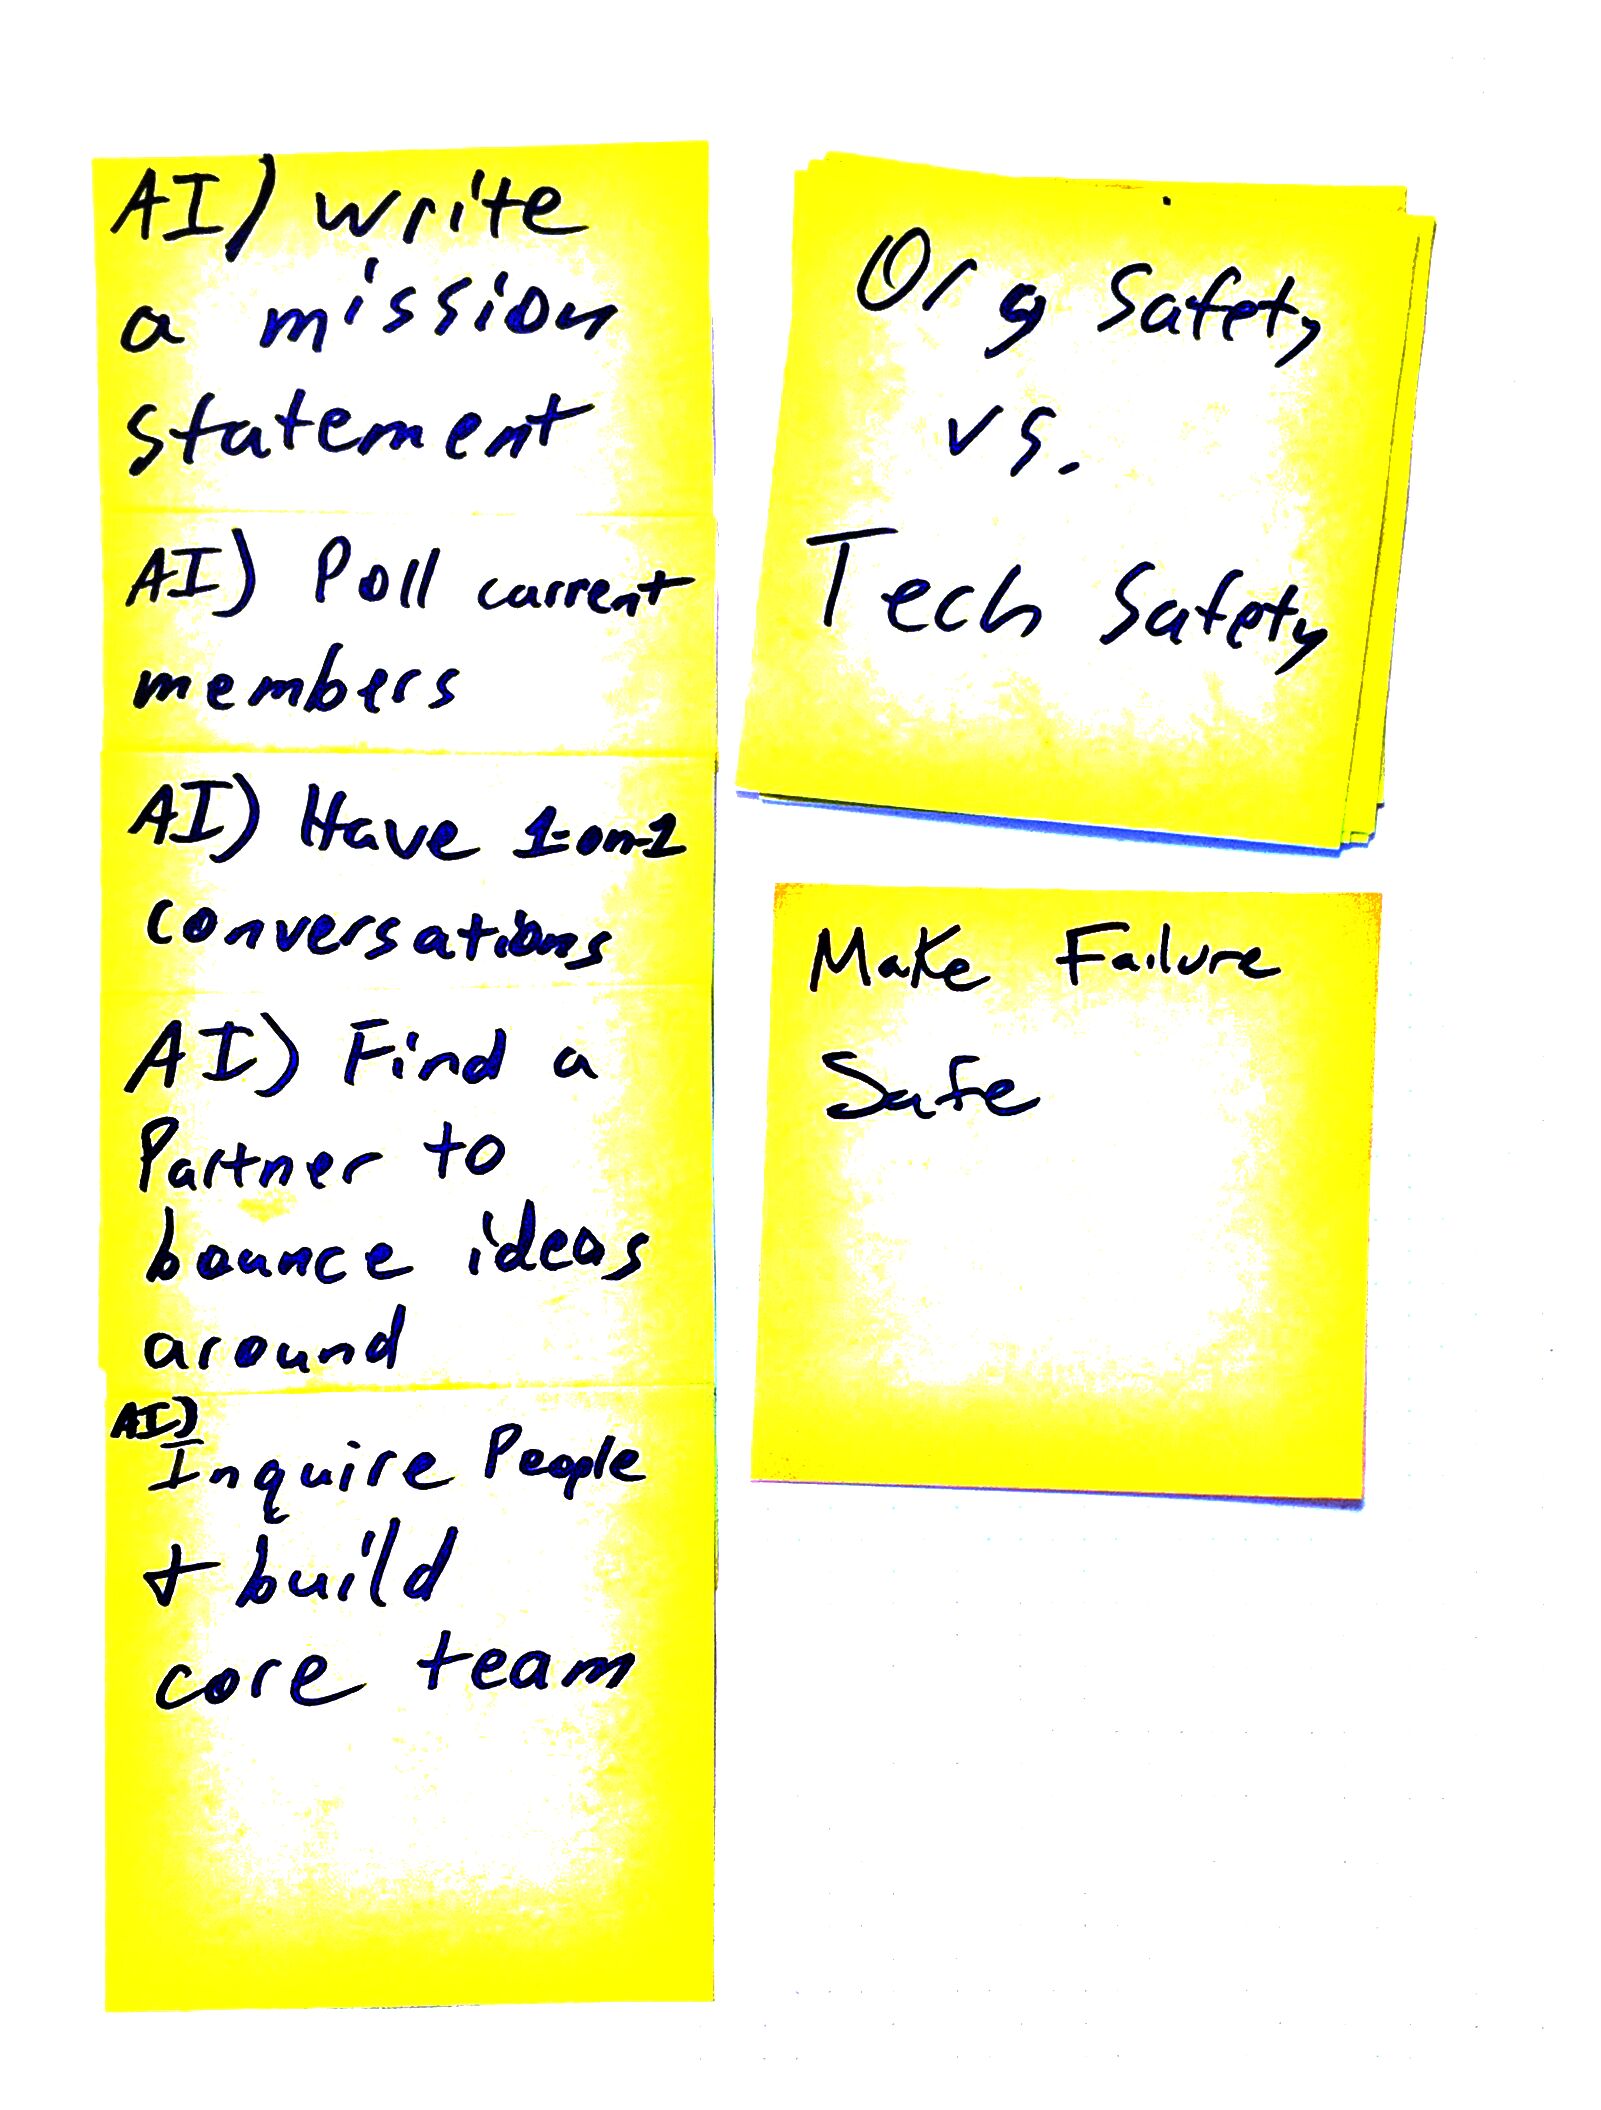 AI) write
a mission
statement
AI) Poll current
members
AI) Have 1-on-1
conversations
AI) Find a
Partner to
bounce ideas
around
AI)
Inquire People
+ build
core team
Org Safety
vs.
Tech Safety
Make Failure
Safe